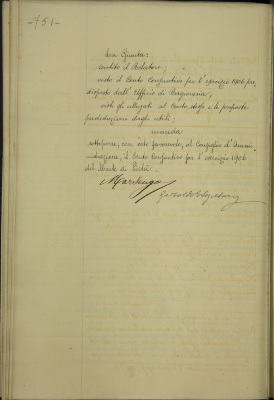 -751-
La Giunta:
sentito il Relatore;
visto il Conto Consuntivo per l'esercizio 1906 pre
disposto dall'Ufficio di Ragioneria,
visti gli allegati al Conto stesso e le proposte
dagli utili;
manda
sottoporre, con voto favorevole, al Consiglio d'Ammi
nistrazione, il Conto Consuntivo per l'esercizio 1906
del Monte di Pietà.